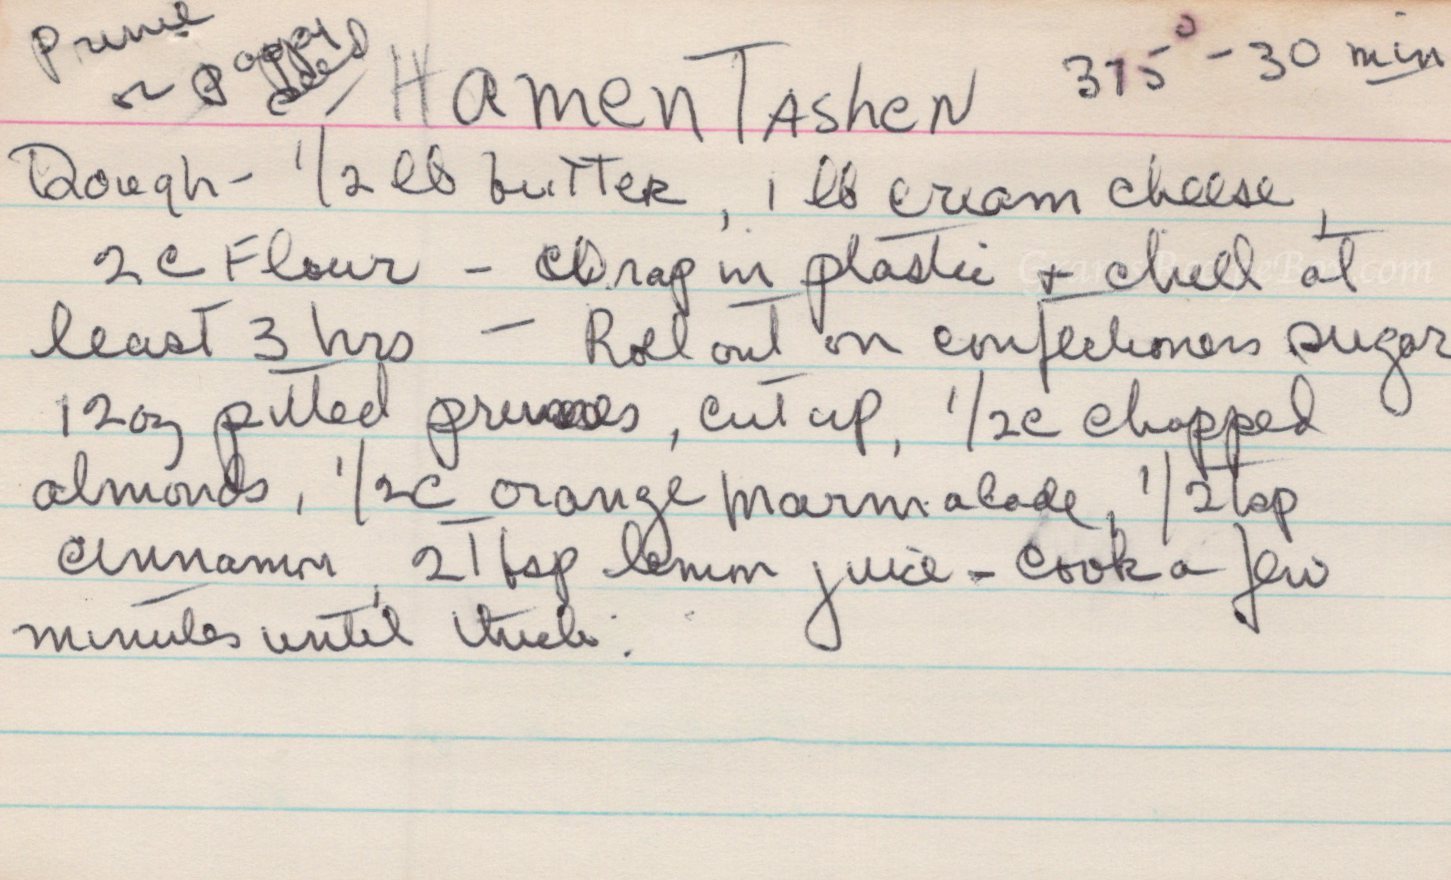 Prune
or Poppy
seed
Hamen Tashen
375° - 30 min
Dough - 1/2 lb butter, 1 lb cream cheese,
2 c Flour - Wrap in plastic + chill at
least 3 hrs - Roll out on confectioners sugar
12 oz pitted prunes, cut up, 1/2 c chopped
almonds, 1/2 c orange marmalade, 1/2 tsp
cinnamon, 2 Tbsp lemon juice - cook a few
minutes until thick.